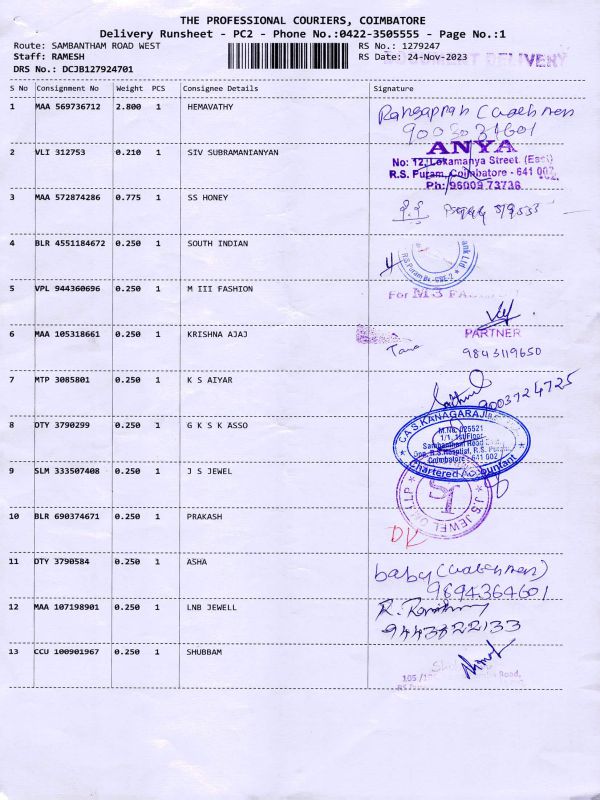 THE PROFESSIONAL COURIERS, COIMBATORE
Delivery Runsheet - PC2 - Phone No.:0422-3505555 - Page No.:1
Route: SAMBANTHAM ROAD WEST
Staff: RAMESH
DRS No.: DCJB127924701
RS No.: 1279247
RS Date: 24-Nov-2023
DELIVERY
S No Consignment No Weight PCS Consignee Details Signature
1 MAA 569736712 2.800 1 HEMAVATHY
2 VLI 312753 0.210 1 SIV SUBRAMANIANYAN
ANYA
No: 12, Lokamanya Street, (East)
R.S. Puram, Coimbatore - 641 002.
Ph: 96009 73736
3 MAA 572874286 0.775 1 SS HONEY
4 BLR 4551184672 0.250 1 SOUTH INDIAN
R.S. Puram Br - CBE-2
5 VPL 944360696 0.250 1 M III FASHION
For M3
PARTNER
6 MAA 105318661 0.250 1 KRISHNA AJAJ
9843119650
7 MTP 3085801 0.250 1 K S AIYAR
9003724725
8 DTY 3790299 0.250 1 G K S K ASSO
CA S.KANAGARAJ
M.No. 025521
1/1, 1st Floor
Sambantham Road
Opp. B.S. Hospital, R.S. Puram
Coimbatore - 641 002
Chartered Accountant
9 SLM 333507408 0.250 1 J S JEWEL
J.S. JEWEL LLP
10 BLR 690374671 0.250 1 PRAKASH
11 DTY 3790584 0.250 1 ASHA
baby (watchmen)
9894364601
12 MAA 107198901 0.250 1 LNB JEWELL
13 CCU 100901967 0.250 1 SHUBBAM
Road,